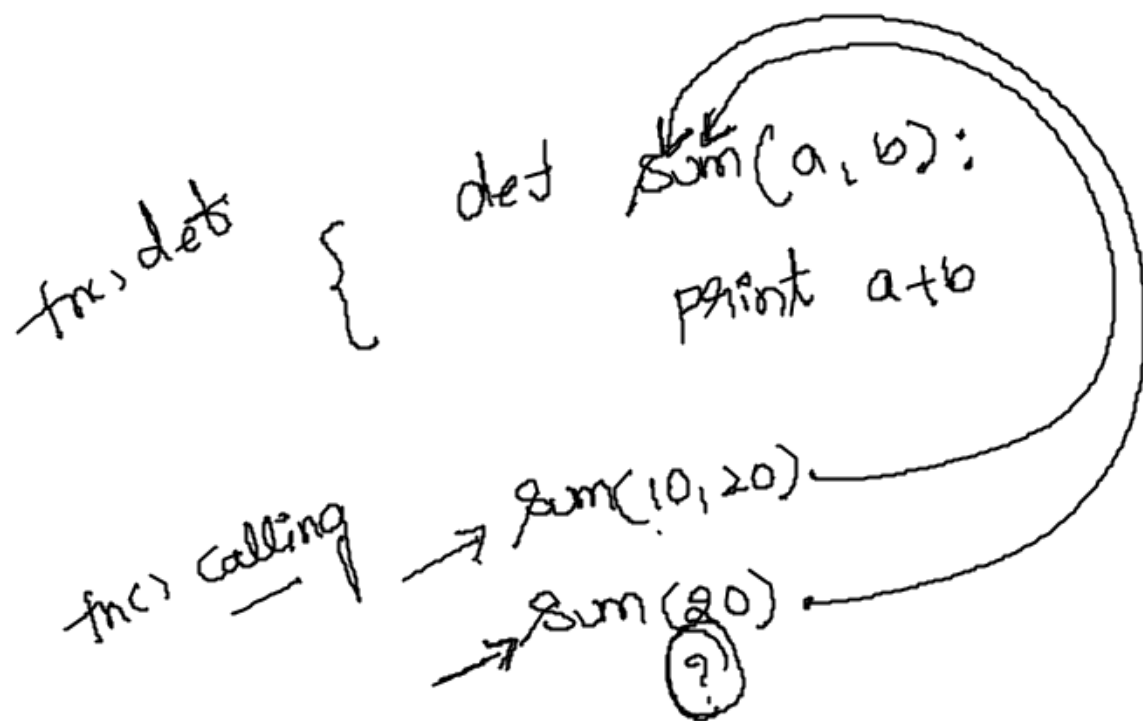 fnc> def { def sum(a, b):
print a+b
fnc> calling → sum(10, 20)
→ sum(20)
?